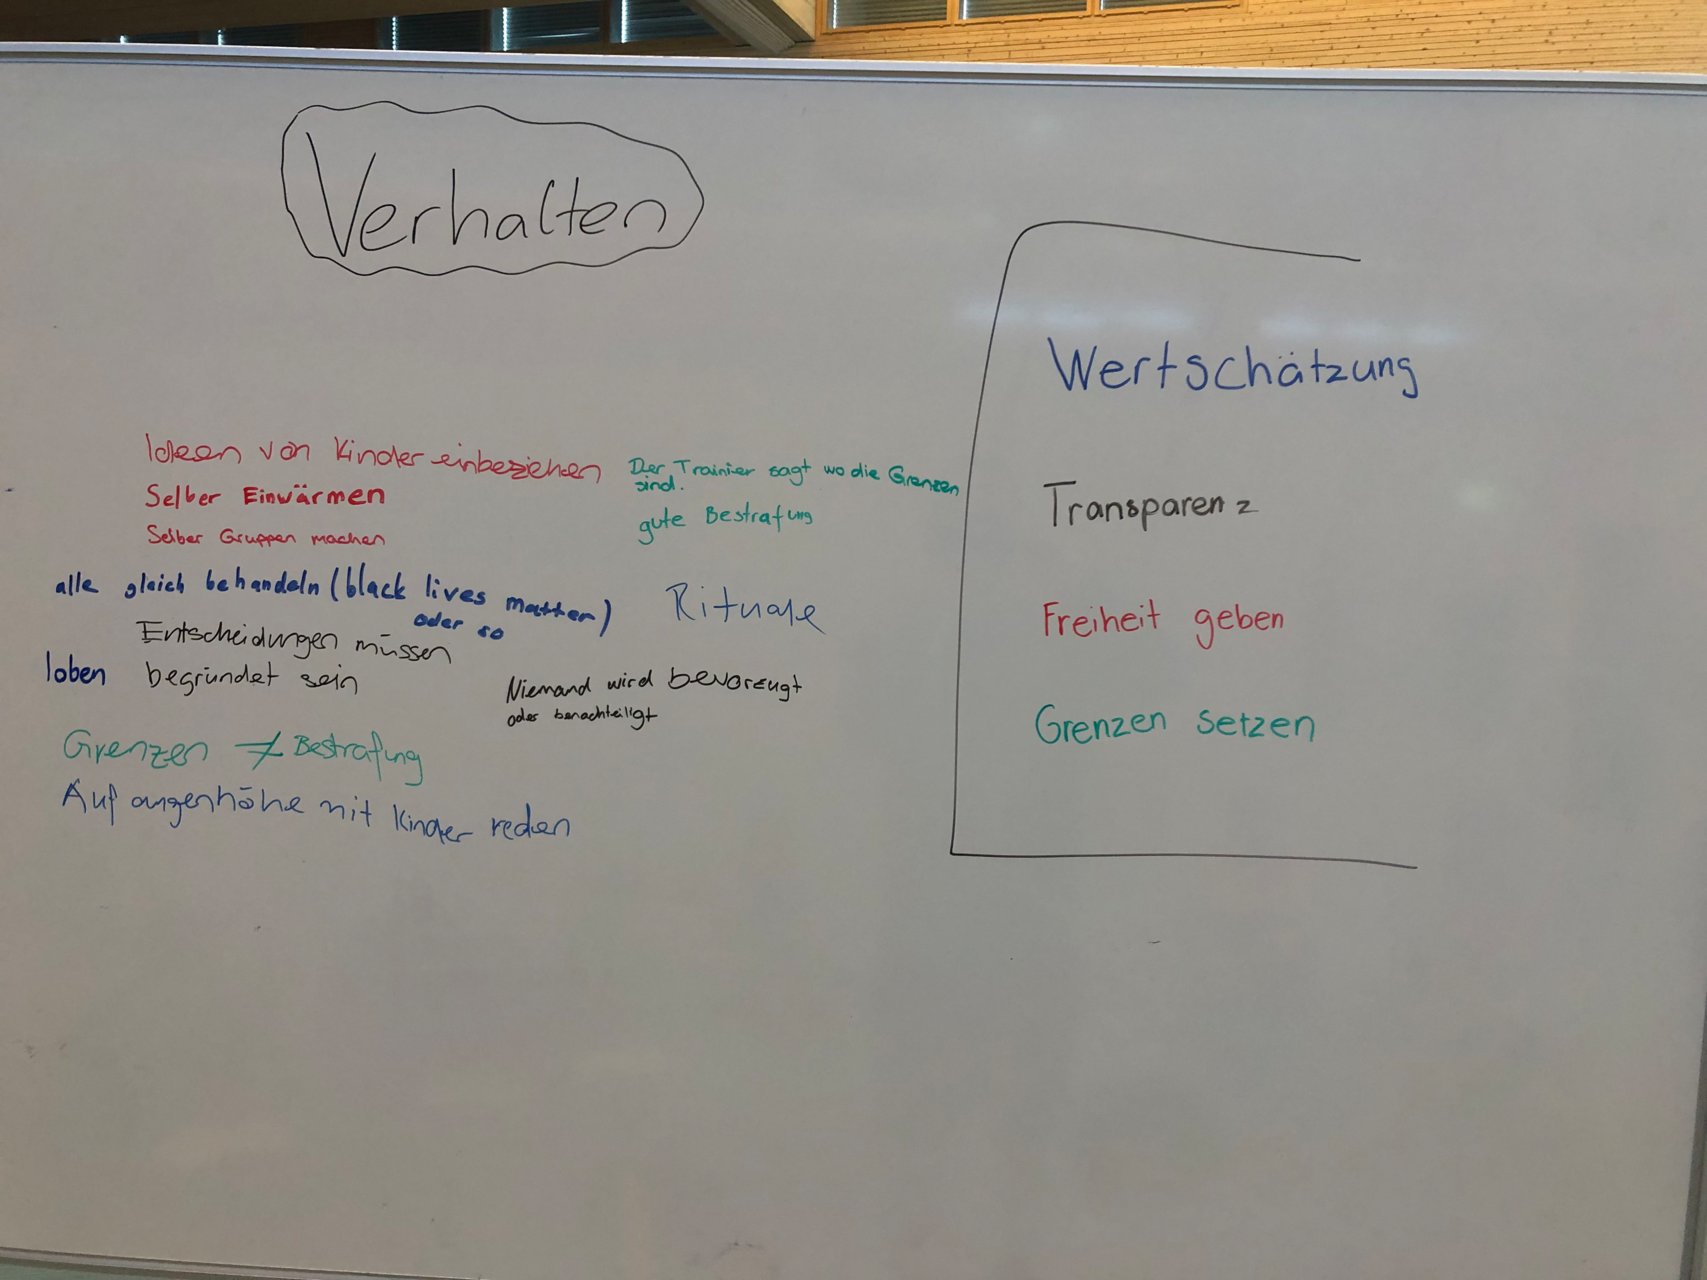 Verhalten
Ideen von Kinder einbeziehen
Selber Einwärmen
Selber Gruppen machen
Der Trainier sagt wo die Grenzen
sind.
gute Bestrafung
alle gleich behandeln (black lives matter)
oder so
Rituale
Entscheidungen müssen
begründet sein
loben
Niemand wird bevorzeugt
oder benachteiligt
Grenzen ≠ Bestrafung
Auf augenhöhe mit Kinder reden
Wertschätzung
Transparenz
Freiheit geben
Grenzen setzen